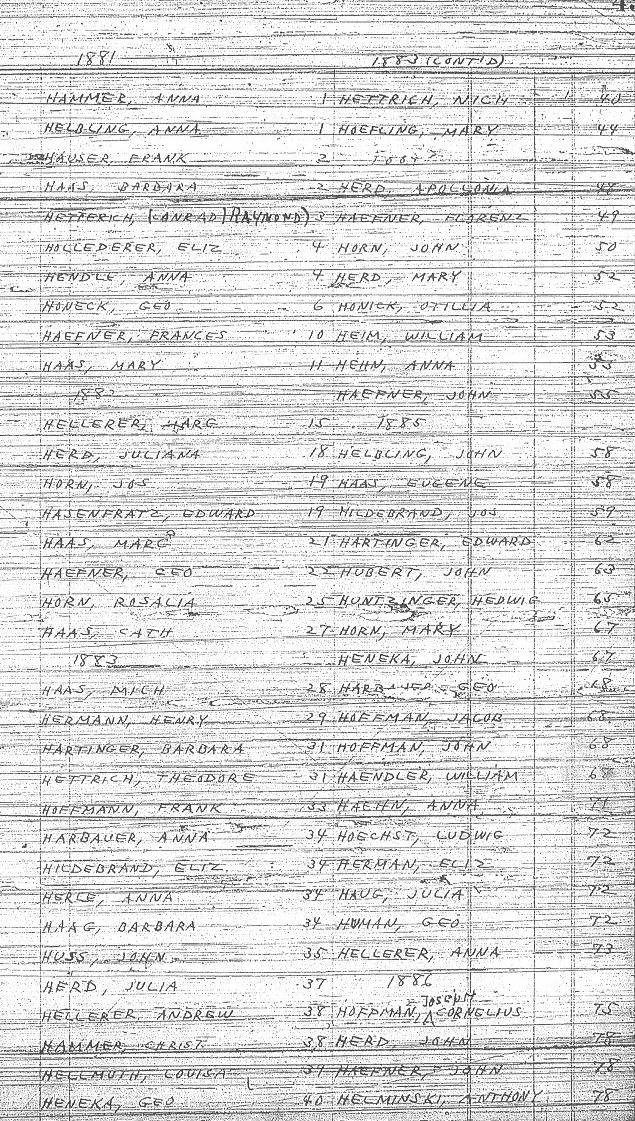 1881
HAMMER, ANNA 1
HELBLING, ANNA 1
HAUSER, FRANK 2
HAAS, BARBARA 2
HETTERICH, (CONRAD) RAYMOND) 3
HOLLEDERER, ELIZ 4
HENDLE, ANNA 4
HONECK, GEO 6
HAEFNER, FRANCES 10
HAAS, MARY 11
1882
HELLERER, MARG 15
HERD, JULIANA 18
HORN, JOS 19
HASENFRATZ, EDWARD 19
HAAS, MARG 21
HAEFNER, GEO 22
HORN, ROSALIA 25
HAAS, CATH 27
1883
HAAS, MICH 28
HERMANN, HENRY 29
HARTINGER, BARBARA 31
HETTRICH, THEODORE 31
HOFFMANN, FRANK 33
HARBAUER, ANNA 34
HILDEBRAND, ELIZ 34
HERCE, ANNA 34
HAAG, BARBARA 34
HUSS, JOHN 35
HERD, JULIA 37
HELLERER, ANDREW 38
HAMMER, CHRIST 38
HELLMUTH, LOUISA 39
HENEKA, GEO 40
1883 (CONT'D)
HETTRICH, NICH 40
HOEFLING, MARY 44
HERD, APOLLONIA 48
HAEFNER, FLORENZ 49
HORN, JOHN 50
HERD, MARY 52
HONICK, OTILLIA 52
HEIM, WILLIAM 53
HEHN, ANNA
HAEFNER, JOHN 55
1885
HELBLING, JOHN 58
HAAS, EUGENE 58
HILDEBRAND, JOS 59
HARTINGER, EDWARD 62
HUBERT, JOHN 63
HUNTZINGER, HEDWIG 65
HORN, MARY 67
HENEKA, JOHN 67
GEO 68
HOFFMAN, JACOB 68
HOFFMAN, JOHN 68
HAENDLER, WILLIAM 68
HAEHN, ANNA 71
HOECHST, LUDWIG 72
HERMAN, ELIZ 72
HAUG, JULIA 72
HUMAN, GEO 72
HELLERER, ANNA 73
1886
HOFFMAN, JOSEPH CORNELIUS 75
HERD, JOHN 78
HAEFNER, JOHN 78
HELMINSKI, ANTHONY 78